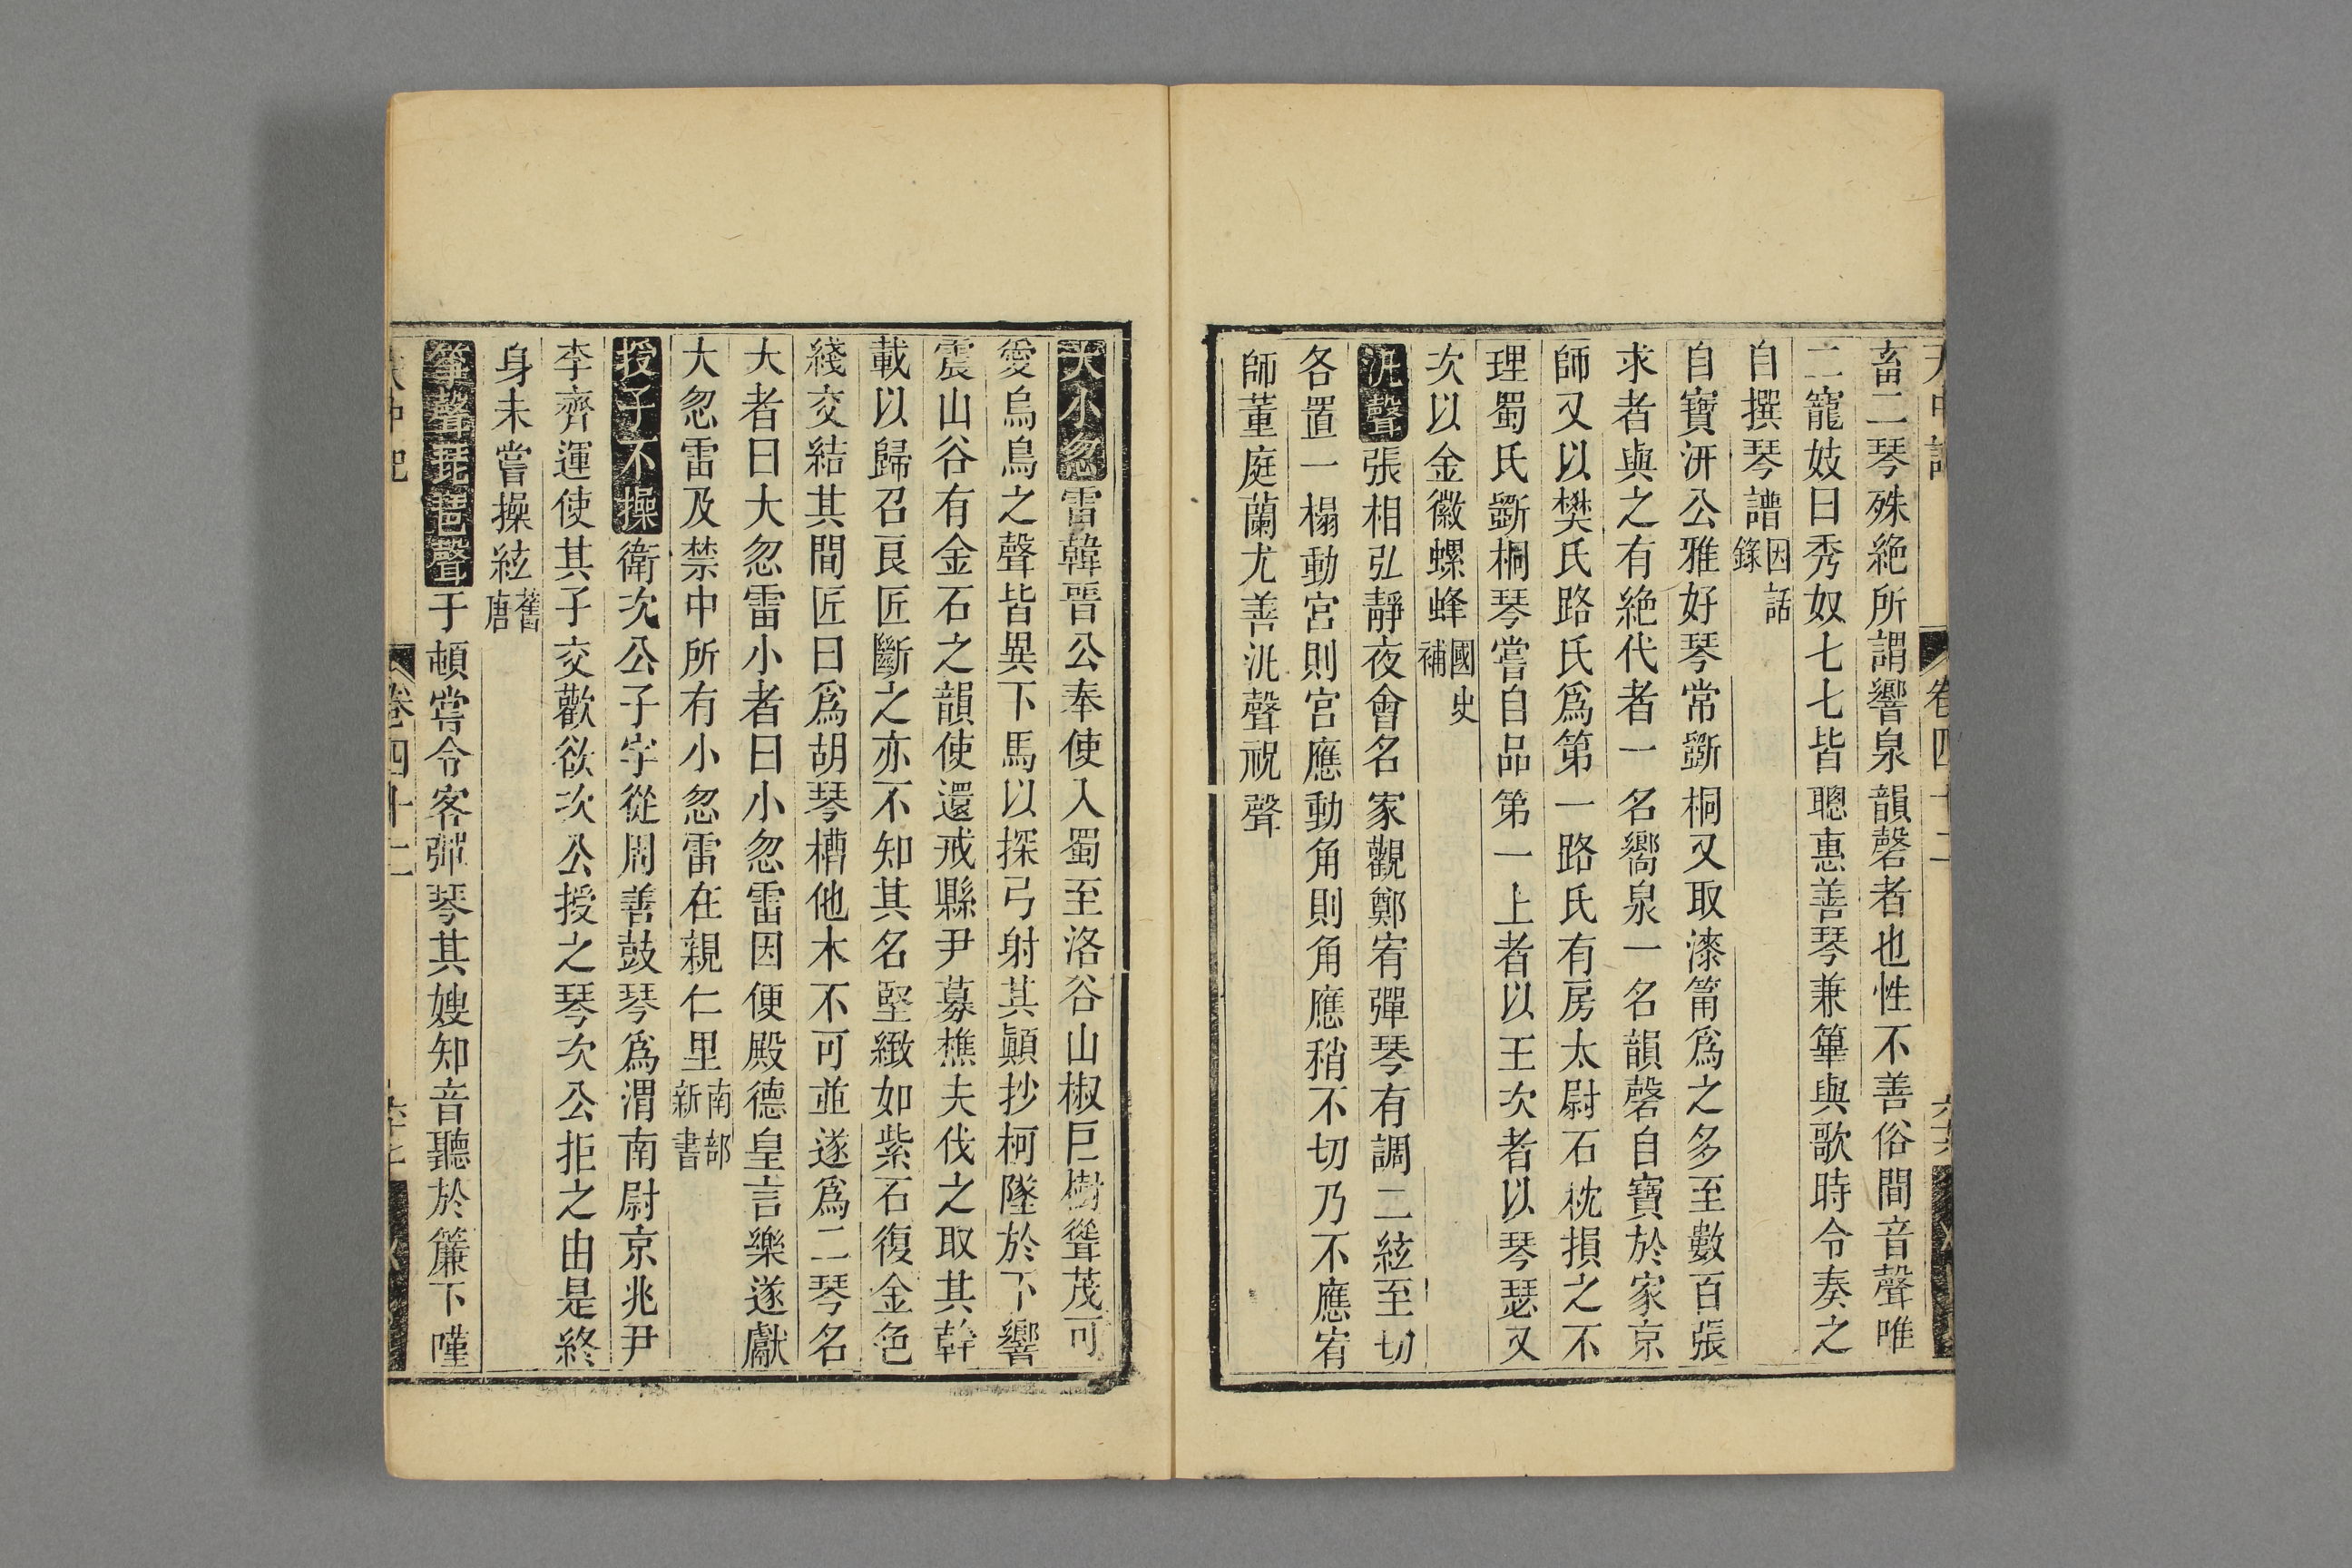 畜二琴殊絶所謂響泉韻磬者也性不善俗間音聲唯
二寵妓曰秀奴七七皆聰惠善琴兼箏與歌時令奏之
自撰琴譜因話錄
自寶汧公雅好琴常斵桐又取漆筩爲之多至數百張
求者與之有絶代者一名響泉一名韻磬自寶於家京
師又以樊氏路氏爲第一路氏有房太尉石枕損之不
理蜀氏斵桐琴嘗自品第一上者以玉次者以琴瑟又
次以金徽螺蜂國史補
泛聲張相弘靜夜會名家觀鄭宥彈琴有調二絃至切
各置一榻動宮則宮應動角則角應稍不切乃不應宥
師董庭蘭尤善汎聲祝聲
大小忽雷韓晋公奉使入蜀至洛谷山椒巨樹聳茂可
愛烏鳥之聲皆異下馬以探弓射其顛抄柯墜於下響
震山谷有金石之韻使還戒縣尹募樵夫伐之取其幹
載以歸召良匠斷之亦不知其名堅緻如紫石復金色
綫交結其間匠曰爲胡琴槽他木不可並遂爲二琴名
大者曰大忽雷小者曰小忽雷因便殿德皇言樂遂獻
大忽雷及禁中所有小忽雷在親仁里南部新書
授子不操衛次公子字從周善鼓琴爲渭南尉京兆尹
李齊運使其子交歡欲次公授之琴次公拒之由是終
身未嘗操絃舊唐
箏聲琵琶聲于頔嘗令客彈琴其嫂知音聽於簾下嘆
卷四十二